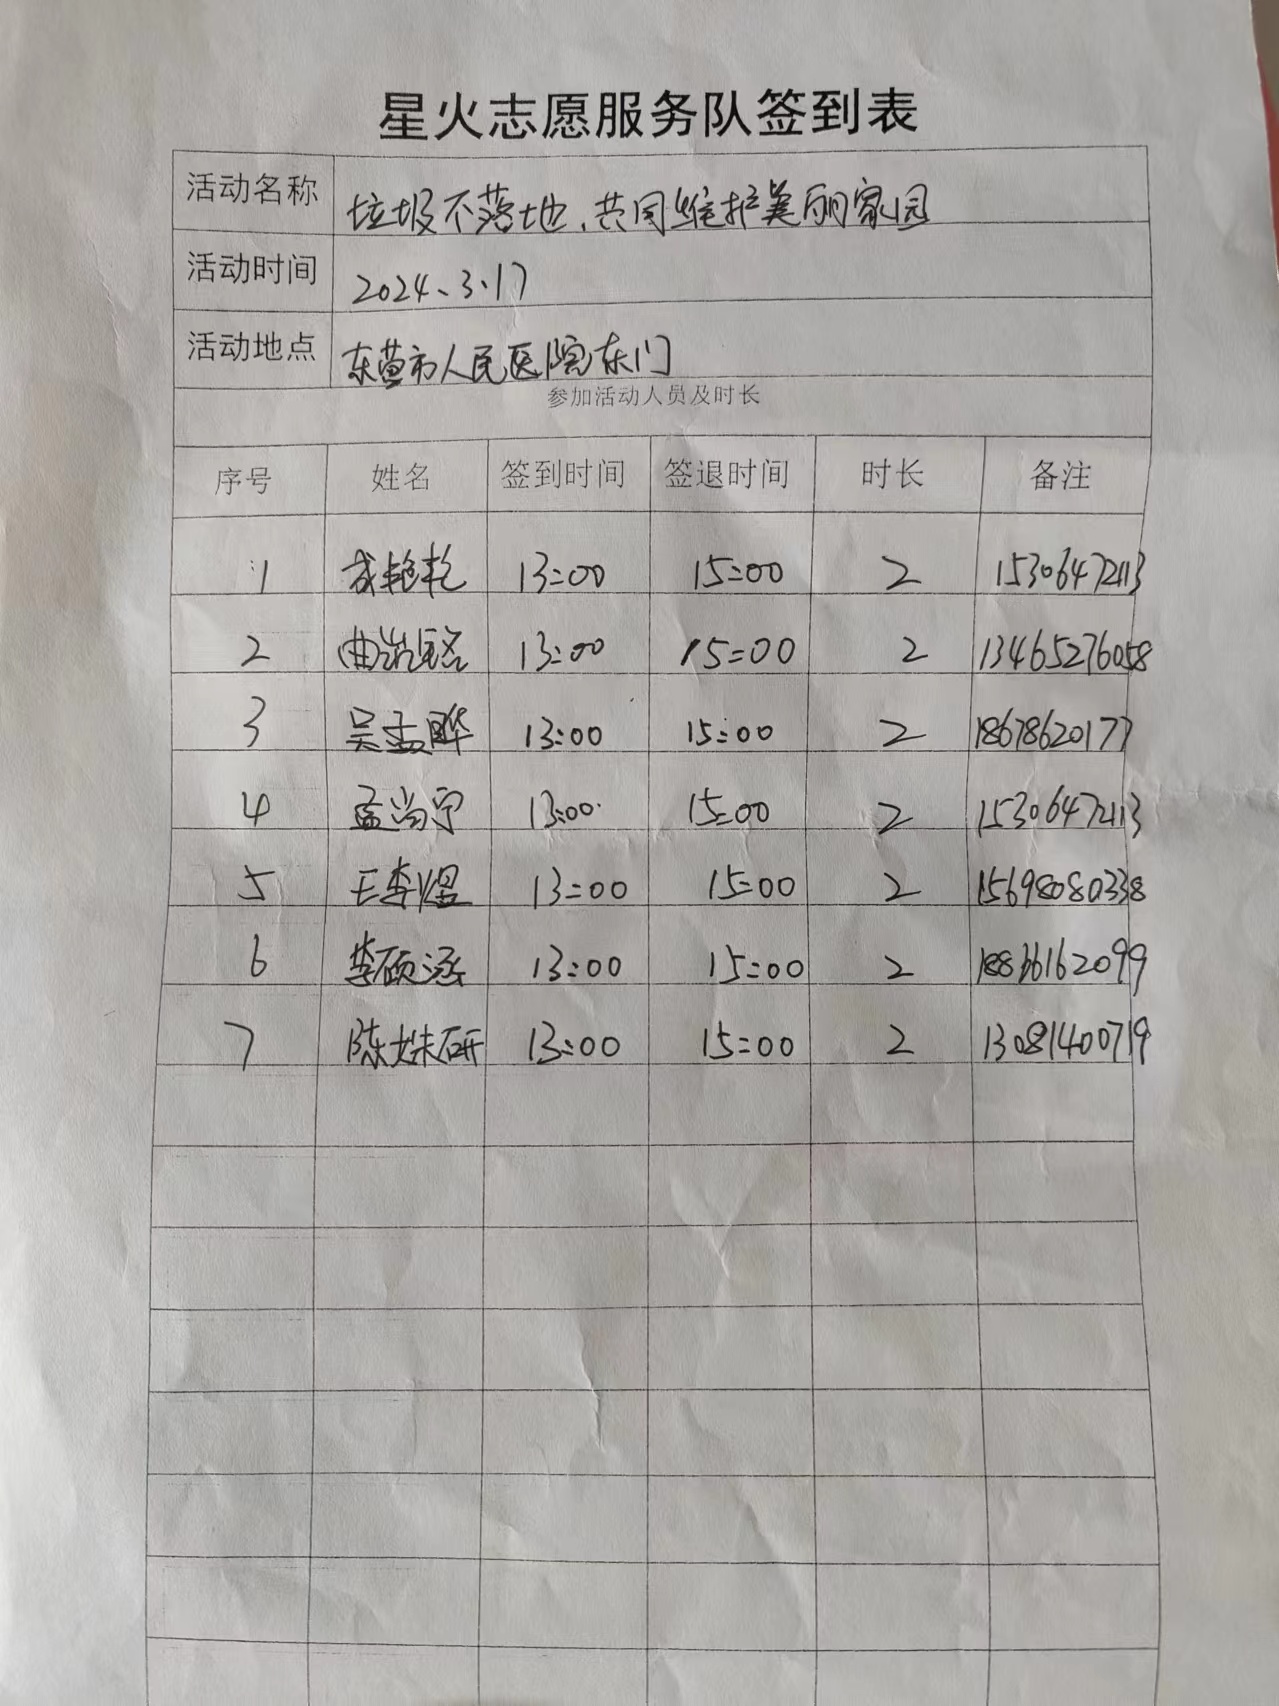 星火志愿服务队签到表
活动名称 垃圾不落地、共同维护美丽家园
活动时间 2024、3.17
活动地点 东营市人民医院东门
参加活动人员及时长
序号 姓名 签到时间 签退时间 时长 备注
1 成艳艳 13:00 15:00 2 15306472113
2 曲凯铭 13:00 15:00 2 13465276058
3 吴孟晔 13:00 15:00 2 18678620177
4 孟尚宁 13:00 15:00 2 15306472113
5 王李煜 13:00 15:00 2 15698080338
6 李硕涵 13:00 15:00 2
7 陈姝研 13:00 15:00 2 13081400719